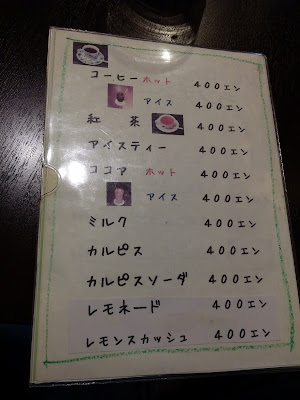 コーヒーホット 400エン
アイス 400エン
紅 茶 400エン
アイスティー 400エン
ココア ホット 400エン
アイス 400エン
ミルク 400エン
カルピス 400エン
カルピスソーダ 400エン
レモネード 400エン
レモンスカッシュ 400エン